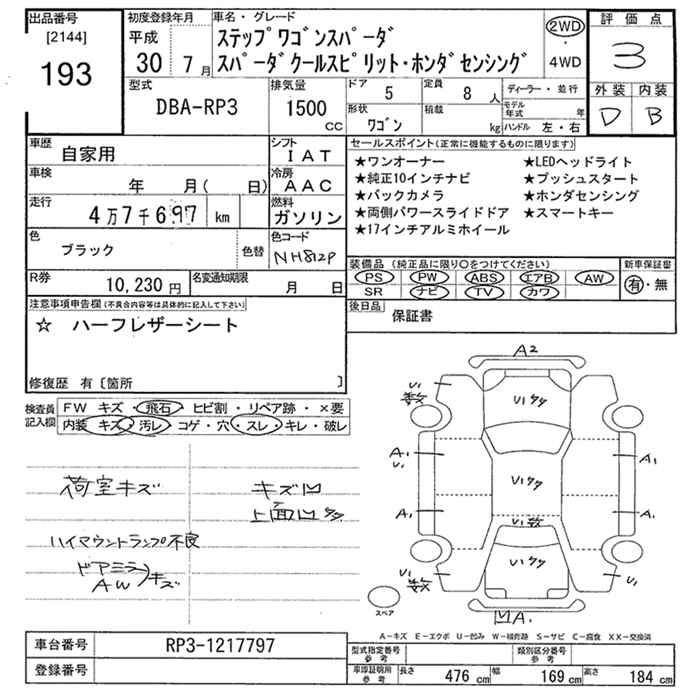 出品番号
[2144]
193
初度登録年月
平成
30 7月
車名・グレード
ステップワゴンスパーダ
スパーダクールスピリット・ホンダセンシング
2WD
・
4WD
評価点
3
外装 内装
D B
型式
DBA-RP3
排気量
1500
CC
ドア
5
定員
8 人
形状
ワゴン
積載
kg
ディーラー・並行
モデル年式 年
ハンドル 左・右
車歴
自家用
シフト
IAT
車検
年 月( 日)
冷房
AAC
走行
4万7千697 km
燃料
ガソリン
色
ブラック
色替
色コード
NH812P
R券
10,230 円
名変通知期限
月 日
セールスポイント(正常に機能するものに限ります)
★ワンオーナー ★LEDヘッドライト
★純正10インチナビ ★プッシュスタート
★バックカメラ ★ホンダセンシング
★両側パワースライドドア ★スマートキー
★17インチアルミホイール
装備品(純正品に限り○をつけてください)
PS PW ABS エアB AW
SR ナビ TV カワ
新車保証書
有・無
後日品
保証書
注意事項申告欄(不具合内容等は具体的に記入して下さい)
☆ ハーフレザーシート
修復歴 有〔箇所 〕
検査員記入欄
FW キズ・飛石・ヒビ割・リペア跡・×要
内装 キズ・汚レ・コゲ・穴・スレ・キレ・破レ
荷室キズ
キズ凹
上面凹多
ハイマウントランプ不良
ドアミラ
AW
キズ
A2
U1 数
U1タタ
A1
U1
A1
U1タタ
A1
A1
U1数
U1数
U1タタ
U1数
凹A1
スペア
A-キズ E-エクボ U-凹み W-補修跡 S-サビ C-腐食 XX-交換済
車台番号
RP3-1217797
登録番号
型式指定番号
参考
類別区分番号
参考
車庫証明用
参考
長さ 476 cm 幅 169 cm 高さ 184 cm